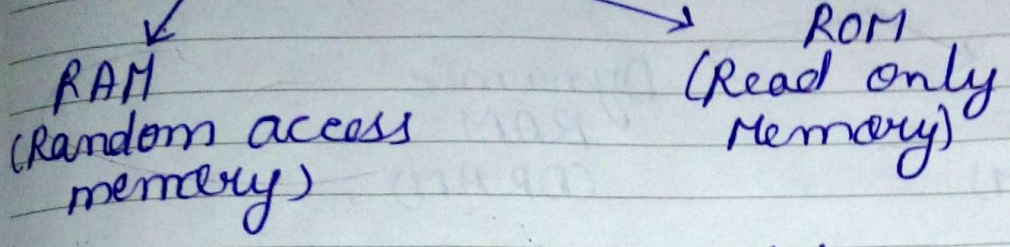 RAM
(Random access
memory)
ROM
(Read only
Memory)